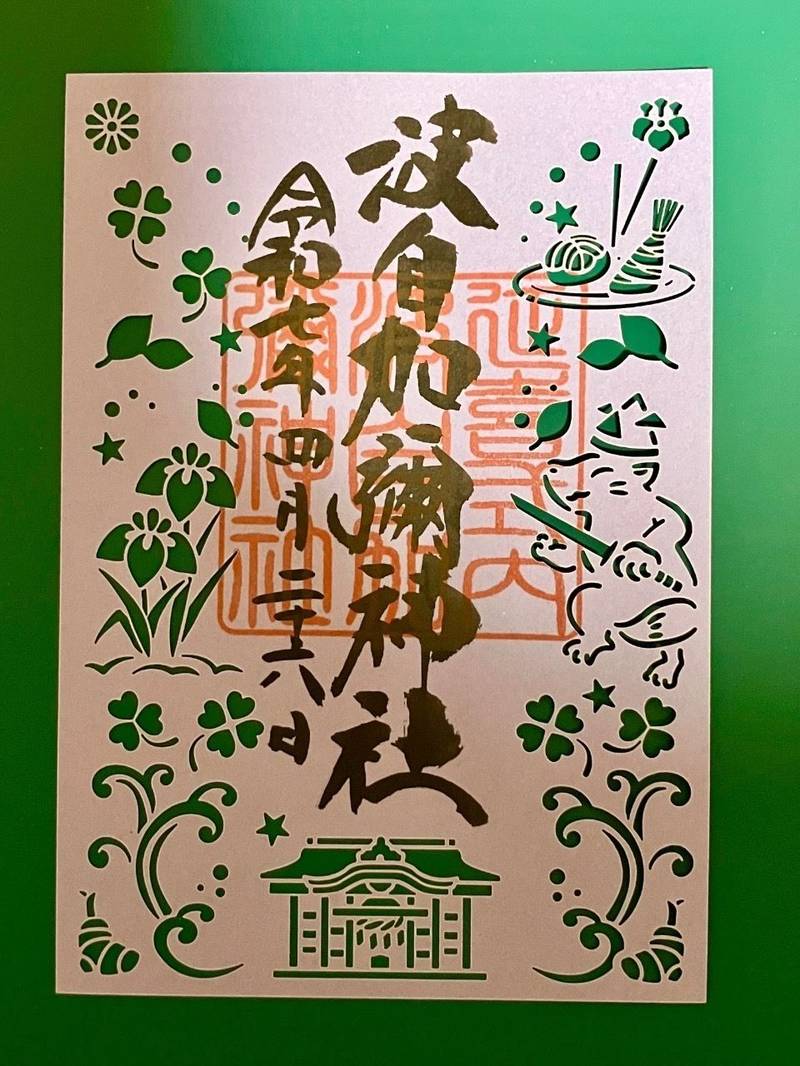 波自加彌神社
令和七年四月二十六日
延喜式内
波自加
彌神社